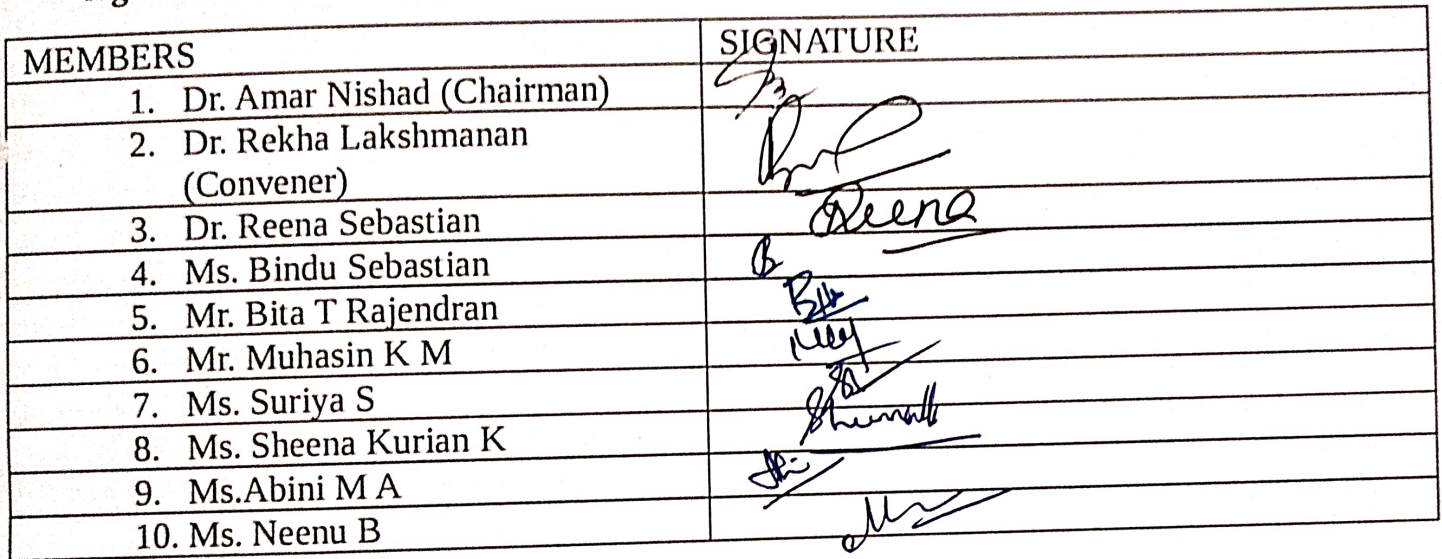 MEMBERS SIGNATURE
1. Dr. Amar Nishad (Chairman)
2. Dr. Rekha Lakshmanan
(Convener)
3. Dr. Reena Sebastian Reena
4. Ms. Bindu Sebastian
5. Mr. Bita T Rajendran
6. Mr. Muhasin K M
7. Ms. Suriya S
8. Ms. Sheena Kurian K
9. Ms.Abini M A
10. Ms. Neenu B